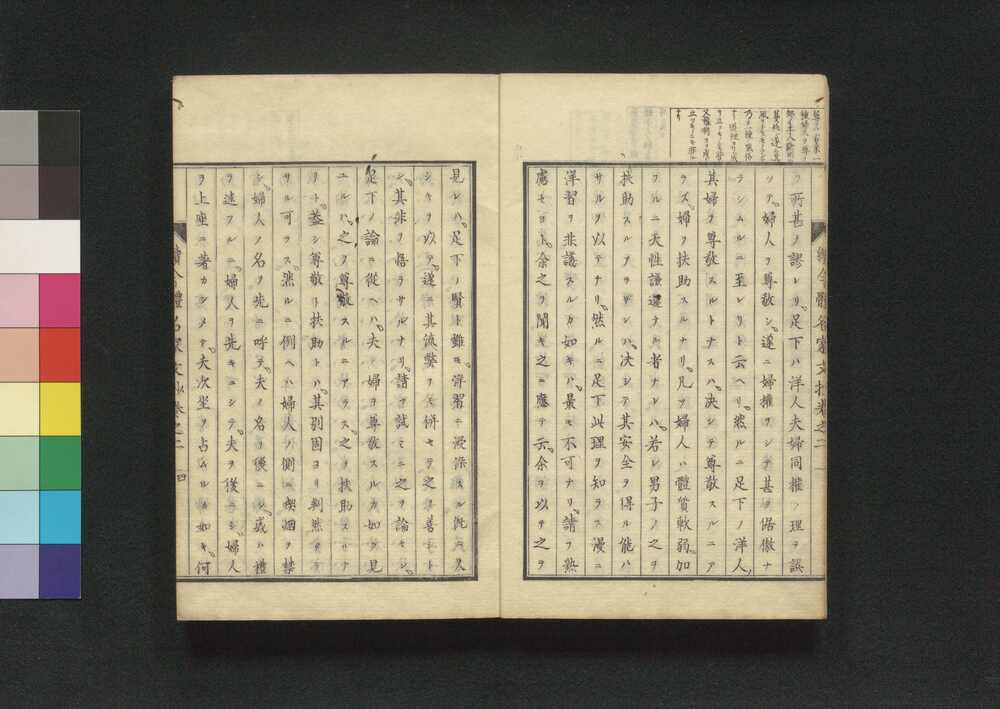 フ所甚ノ謬レリ足下ハ洋人夫婦同権ノ理ヲ誤
ソテ婦人ヲ尊敬シ遂ニ婦権ヲシテ甚タ倨傲ナ
ラシムルニ至レリト云ヘリ然ルニ足下ノ洋人
其婦ヲ尊敬スルトナスハ決シテ尊敬スルニア
ラス婦ヲ扶助スルナリ凡ソ婦人ハ體質軟弱加
フルニ天性謙遜ナル者ナレハ若シ男子ノ之ヲ
扶助スルアラサレハ決シテ其安全ヲ得ル能ハ
サルヲ以テナリ然ルニ足下此理ヲ知ラス漫ニ
洋習ヲ非議スルカ如キハ最モ不可ナリ請フ熟
慮セヨト余之ヲ聞キ之ニ應テ云余ヲ以テ之ヲ
見レハ足下ノ賢ト雖モ洋習ニ浸染スル既ニ久
シキヲ以テ遂ニ其流弊ヲモ併セテ之ヲ善トシ
其非ヲ悟ラサルナリ請ケ試ミニ之ヲ論セン
足下ノ論ニ從ヘハ夫ノ婦ヲ尊敬スルカ如ク見
ユルハ之ヲ尊敬スルニアラス之ヲ扶助スルナ
リト蓋シ尊敬ト扶助トハ其別固ヨリ判然タラ
サル可ラス然ルニ例ヘハ婦人ノ側ニ喫烟ヲ禁
シ婦人ノ名ヲ先ニ呼テ夫ノ名ヲ後ニシ或ハ禮
ヲ述フルニ婦人ヲ先キニシテ夫ヲ後ニシ婦人
ヲ上座ニ著カシメテ夫次坐ヲ占ムルカ如キ何
續今體名家文抄巻之二 四